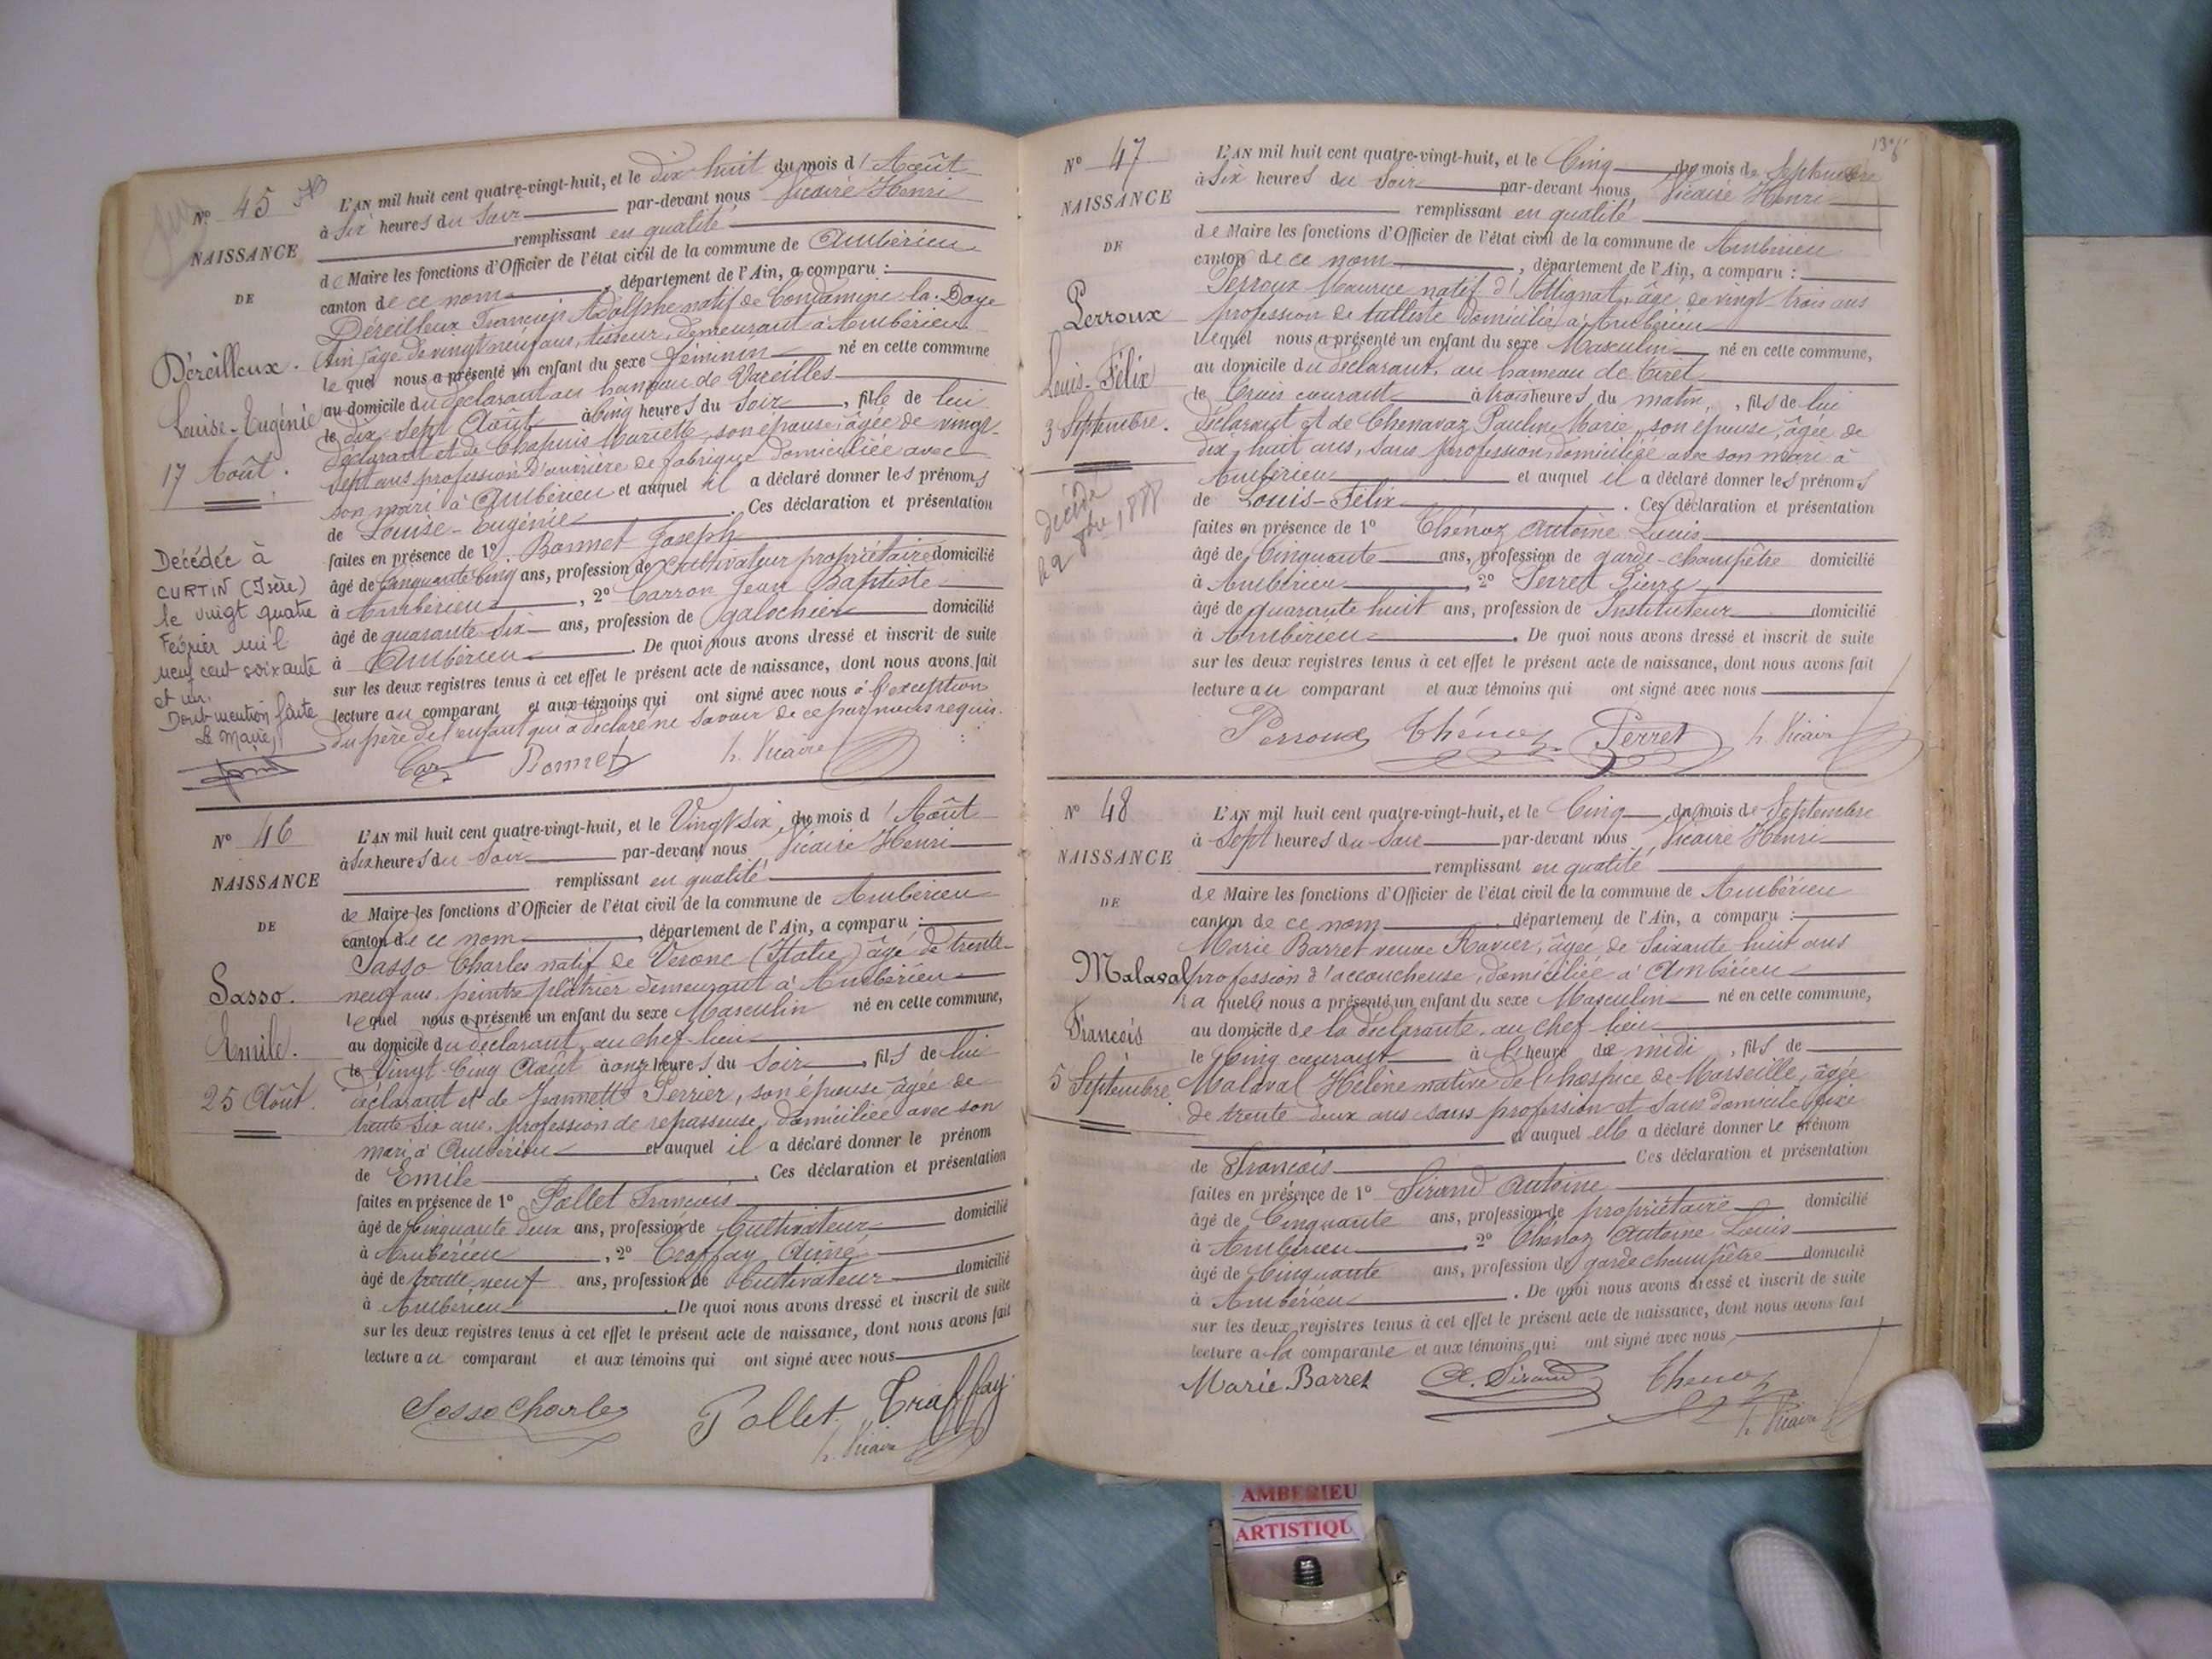 N° 45
NAISSANCE
DE
Déreilleux.
Louise-Eugénie
17 Août.
Décédée à
CURTIN (Isère)
le vingt quatre
Février mil
neuf cent soixante
et un.
Dont mention faite
Le Maire,
L'AN mil huit cent quatre-vingt-huit, et le dix huit du mois d'Août
à Six heures du Soir par-devant nous Vicaire Henri
remplissant en qualité
de Maire les fonctions d'Officier de l'état civil de la commune de Ambérieu
canton de ce nom, département de l'Ain, a comparu :
Déreilleux Adolphe natif de Condamine-la-Doye
Ain, âgé de vingt neuf ans, tisseur, demeurant à Ambérieu
lequel nous a présenté un enfant du sexe féminin né en cette commune
au domicile du déclarant au hameau de Vareilles
le dix sept Août à Cinq heures du Soir, fille de lui
déclarant et de Chapuis Mariette, son épouse, âgée de vingt-
sept ans profession d'ouvrière de fabrique domiciliée avec
son mari à Ambérieu et auquel il a déclaré donner les prénoms
de Louise-Eugénie. Ces déclaration et présentation
faites en présence de 1° Bonnet Joseph
âgé de Cinquante Cinq ans, profession de Cultivateur propriétaire domicilié
à Ambérieu, 2° Carron Jean Baptiste
âgé de quarante-six ans, profession de galochier domicilié
à Ambérieu. De quoi nous avons dressé et inscrit de suite
sur les deux registres tenus à cet effet le présent acte de naissance, dont nous avons fait
lecture au comparant et aux témoins qui ont signé avec nous à l'exception
du père de l'enfant qui a déclaré ne savoir de ce par nous requis.
Bonnet h. Vicaire
N° 46
NAISSANCE
DE
Sasso.
Emile.
25 Août.
L'AN mil huit cent quatre-vingt-huit, et le Vingt Six du mois d'Août
à Six heures du Soir par-devant nous Vicaire Henri
remplissant en qualité
de Maire les fonctions d'Officier de l'état civil de la commune de Ambérieu
canton de ce nom, département de l'Ain, a comparu :
Sasso Charles natif de Verone (Italie) âgé de trente-
neuf ans, peintre plâtrier demeurant à Ambérieu
lequel nous a présenté un enfant du sexe Masculin né en cette commune,
au domicile du déclarant, au chef-lieu
le Vingt-Cinq Août à onze heures du Soir, fils de lui
déclarant et de Jeannette Perrier, son épouse âgée de
trente six ans, profession de repasseuse, domiciliée avec son
mari à Ambérieu et auquel il a déclaré donner le prénom
de Emile. Ces déclaration et présentation
faites en présence de 1° Pollet Francois
âgé de Cinquante deux ans, profession de Cultivateur domicilié
à Ambérieu, 2° Traffay Aimé
âgé de trente neuf ans, profession de Cultivateur domicilié
à Ambérieu. De quoi nous avons dressé et inscrit de suite
sur les deux registres tenus à cet effet le présent acte de naissance, dont nous avons fait
lecture au comparant et aux témoins qui ont signé avec nous
Sasso Charles Pollet Traffay
h. Vicaire
N° 47
NAISSANCE
DE
Perroux
Louis-Félix
3 Septembre.
décédé
L'AN mil huit cent quatre-vingt-huit, et le Cinq du mois de Septembre
à Six heures du Soir par-devant nous Vicaire Henri
remplissant en qualité
de Maire les fonctions d'Officier de l'état civil de la commune de Ambérieu
canton de ce nom, département de l'Ain, a comparu :
Perroux Maurice natif d'Attignat, âgé de vingt trois ans
profession de tulliste domicilié à Ambérieu
lequel nous a présenté un enfant du sexe Masculin né en cette commune,
au domicile du déclarant, au hameau de Tiret
le trois courant à trois heures du matin, fils de lui
déclarant et de Chenavaz Pauline Marie, son épouse, âgée de
dix-huit ans, sans profession, domiciliée avec son mari à
Ambérieu et auquel il a déclaré donner les prénoms
de Louis-Félix. Ces déclaration et présentation
faites en présence de 1° Thénoz Antoine Louis
âgé de Cinquante ans, profession de garde-champêtre domicilié
à Ambérieu, 2° Perret Pierre
âgé de quarante huit ans, profession de Instituteur domicilié
à Ambérieu. De quoi nous avons dressé et inscrit de suite
sur les deux registres tenus à cet effet le présent acte de naissance, dont nous avons fait
lecture au comparant et aux témoins qui ont signé avec nous
Perroux Thénoz Perret h. Vicaire
N° 48
NAISSANCE
DE
Malaval
Francois
5 Septembre
L'AN mil huit cent quatre-vingt-huit, et le Cinq du mois de Septembre
à Sept heures du Soir par-devant nous Vicaire Henri
remplissant en qualité
de Maire les fonctions d'Officier de l'état civil de la commune de Ambérieu
canton de ce nom département de l'Ain, a comparu :
Marie Barret veuve Ravier, âgée de Soixante huit ans
profession d'accoucheuse, domiciliée à Ambérieu
laquelle nous a présenté un enfant du sexe Masculin né en cette commune,
au domicile de la déclarante, au chef-lieu
le Cinq courant à l'heure de midi, fils de
Malaval Hélène native de l'hospice de Marseille, âgée
de trente deux ans sans profession et sans domicile fixe
et auquel elle a déclaré donner le prénom
de Francois Ces déclaration et présentation
faites en présence de 1° Sirand Antoine
âgé de Cinquante ans, profession de propriétaire domicilié
à Ambérieu, 2° Thénoz Antoine Louis
âgé de Cinquante ans, profession de garde champêtre domicilié
à Ambérieu. De quoi nous avons dressé et inscrit de suite
sur les deux registres tenus à cet effet le présent acte de naissance, dont nous avons fait
lecture a la comparante et aux témoins qui ont signé avec nous
Marie Barret A. Sirand Thenoz
h. Vicaire
AMBERIEU
ARTISTIQU